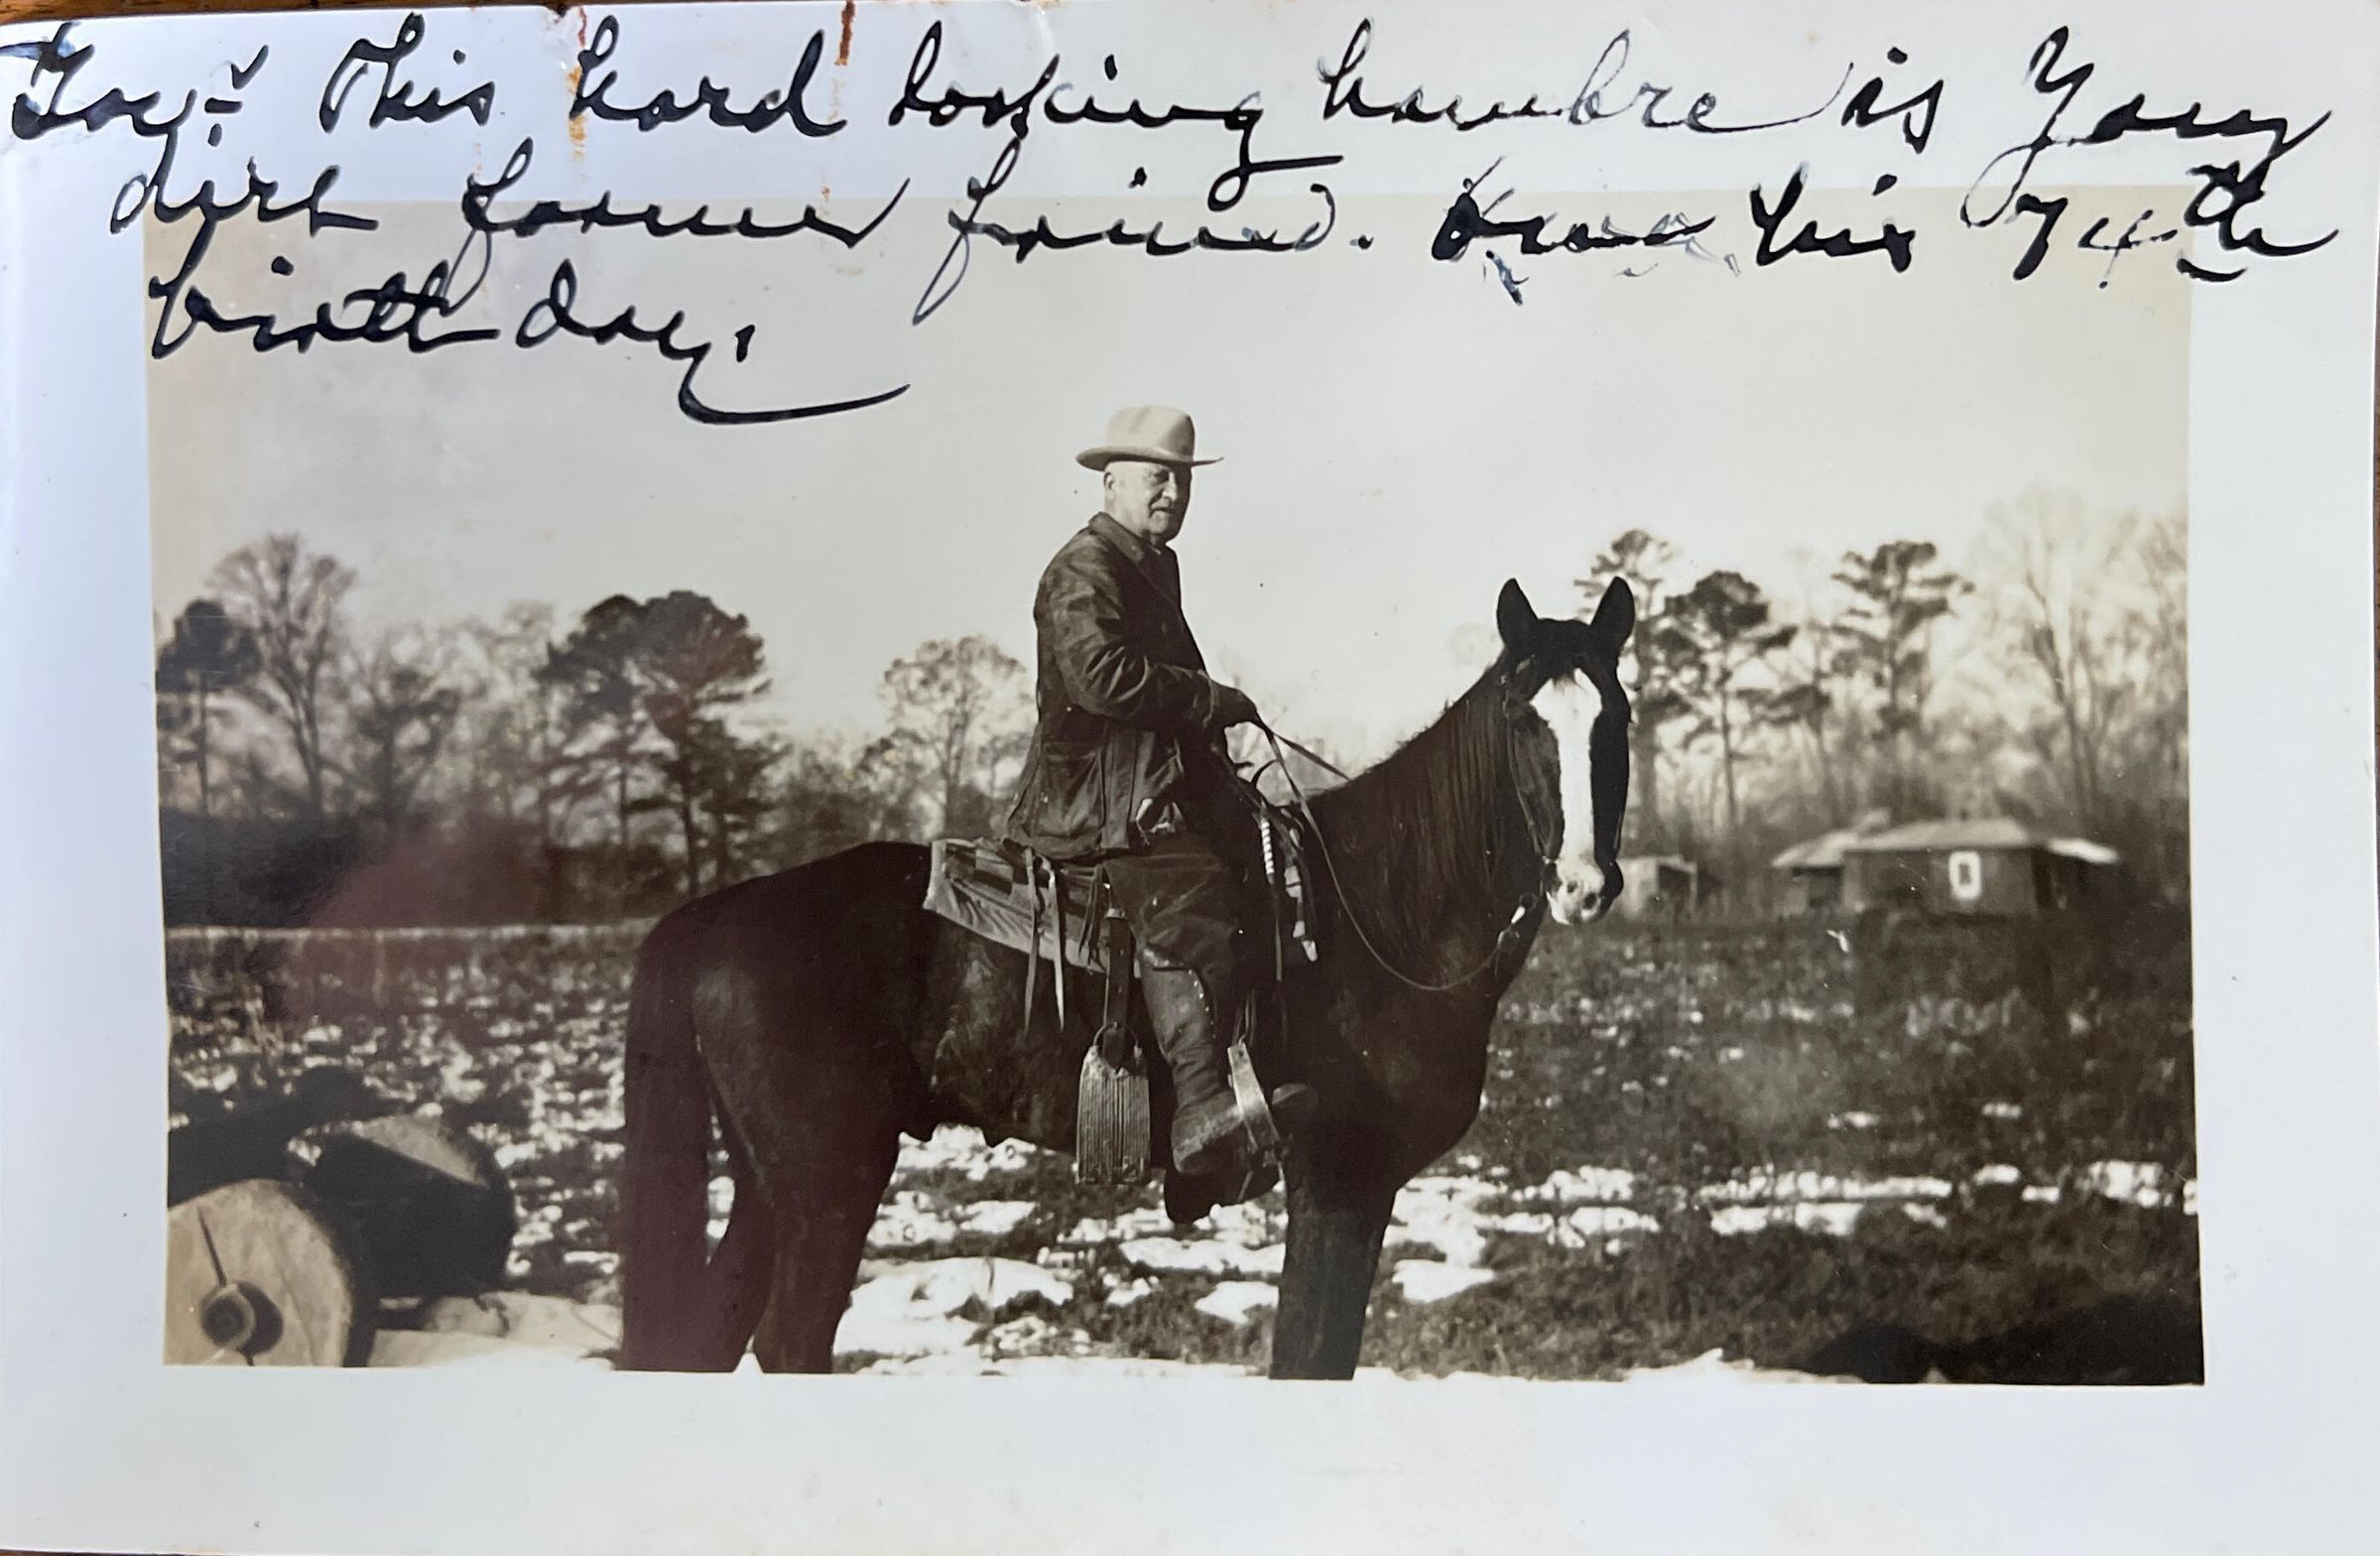 Toy:- This hard looking hombre is Your
dirt farmer friend. his 74th
birth day.